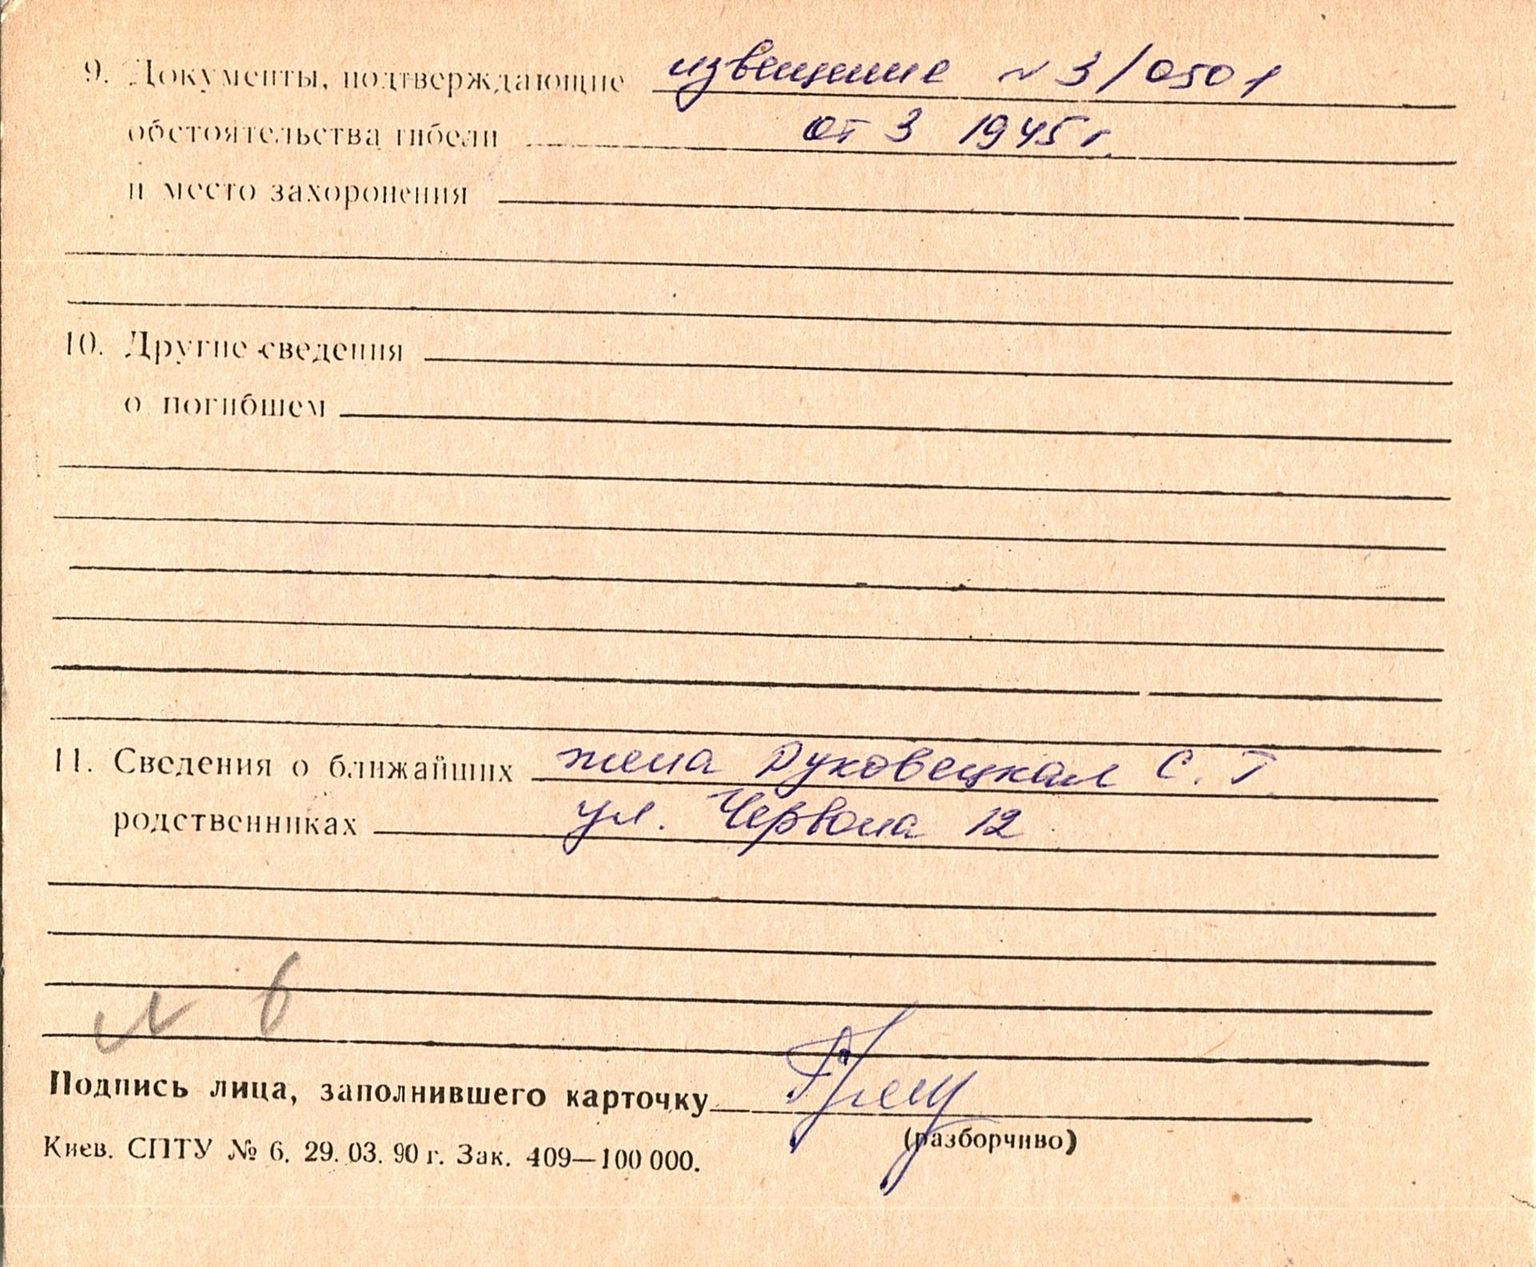 9. Документы, подтверждающие извещение № 3/0501
обстоятельства гибели от 3 1945 г.
и место захоронения
10. Другие сведения
о погибшем
11. Сведения о ближайших жена Духовецкая С. Т.
родственниках ул. Червона 12
№ 6
Подпись лица, заполнившего карточку
(разборчиво)
Киев. СПТУ № 6. 29. 03. 90 г. Зак. 409—100 000.